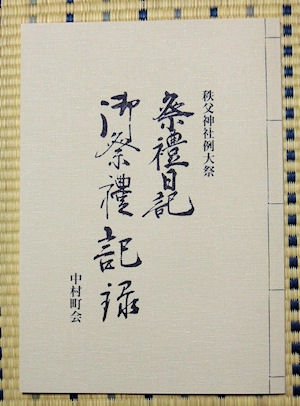 秩父神社例大祭
祭禮日記
御祭禮記録
中村町会